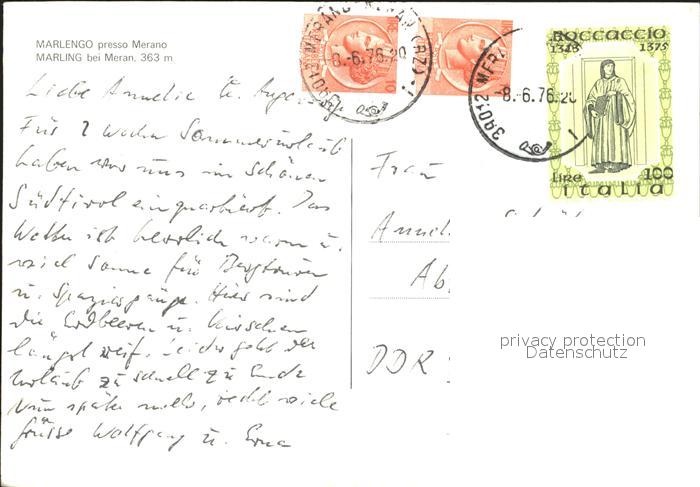 MARLENGO presso Merano
MARLING bei Meran, 363 m
39012 MERANO MERAN (BZ)
-8.-6.76.20
39012 MERA
-8.-6.76.20
BOCCACCIO
1313 1375
Lire 100
italia
Liebe Annelie u.
Für 2 Wochen Sommerurlaub
haben wir uns im schönen
Südtirol einquartiert. Das
Wetter ist herrlich warm u.
viel Sonne für Bergtouren
u. Spaziergänge. Hier sind
die Erdbeeren u. Kirschen
längst reif. Leider geht der
Urlaub zu schnell zu Ende
Nun später mehr, recht viele
Grüsse Wolfgang u. Erna
Frau
Annel
Ab
DDR
privacy protection
Datenschutz